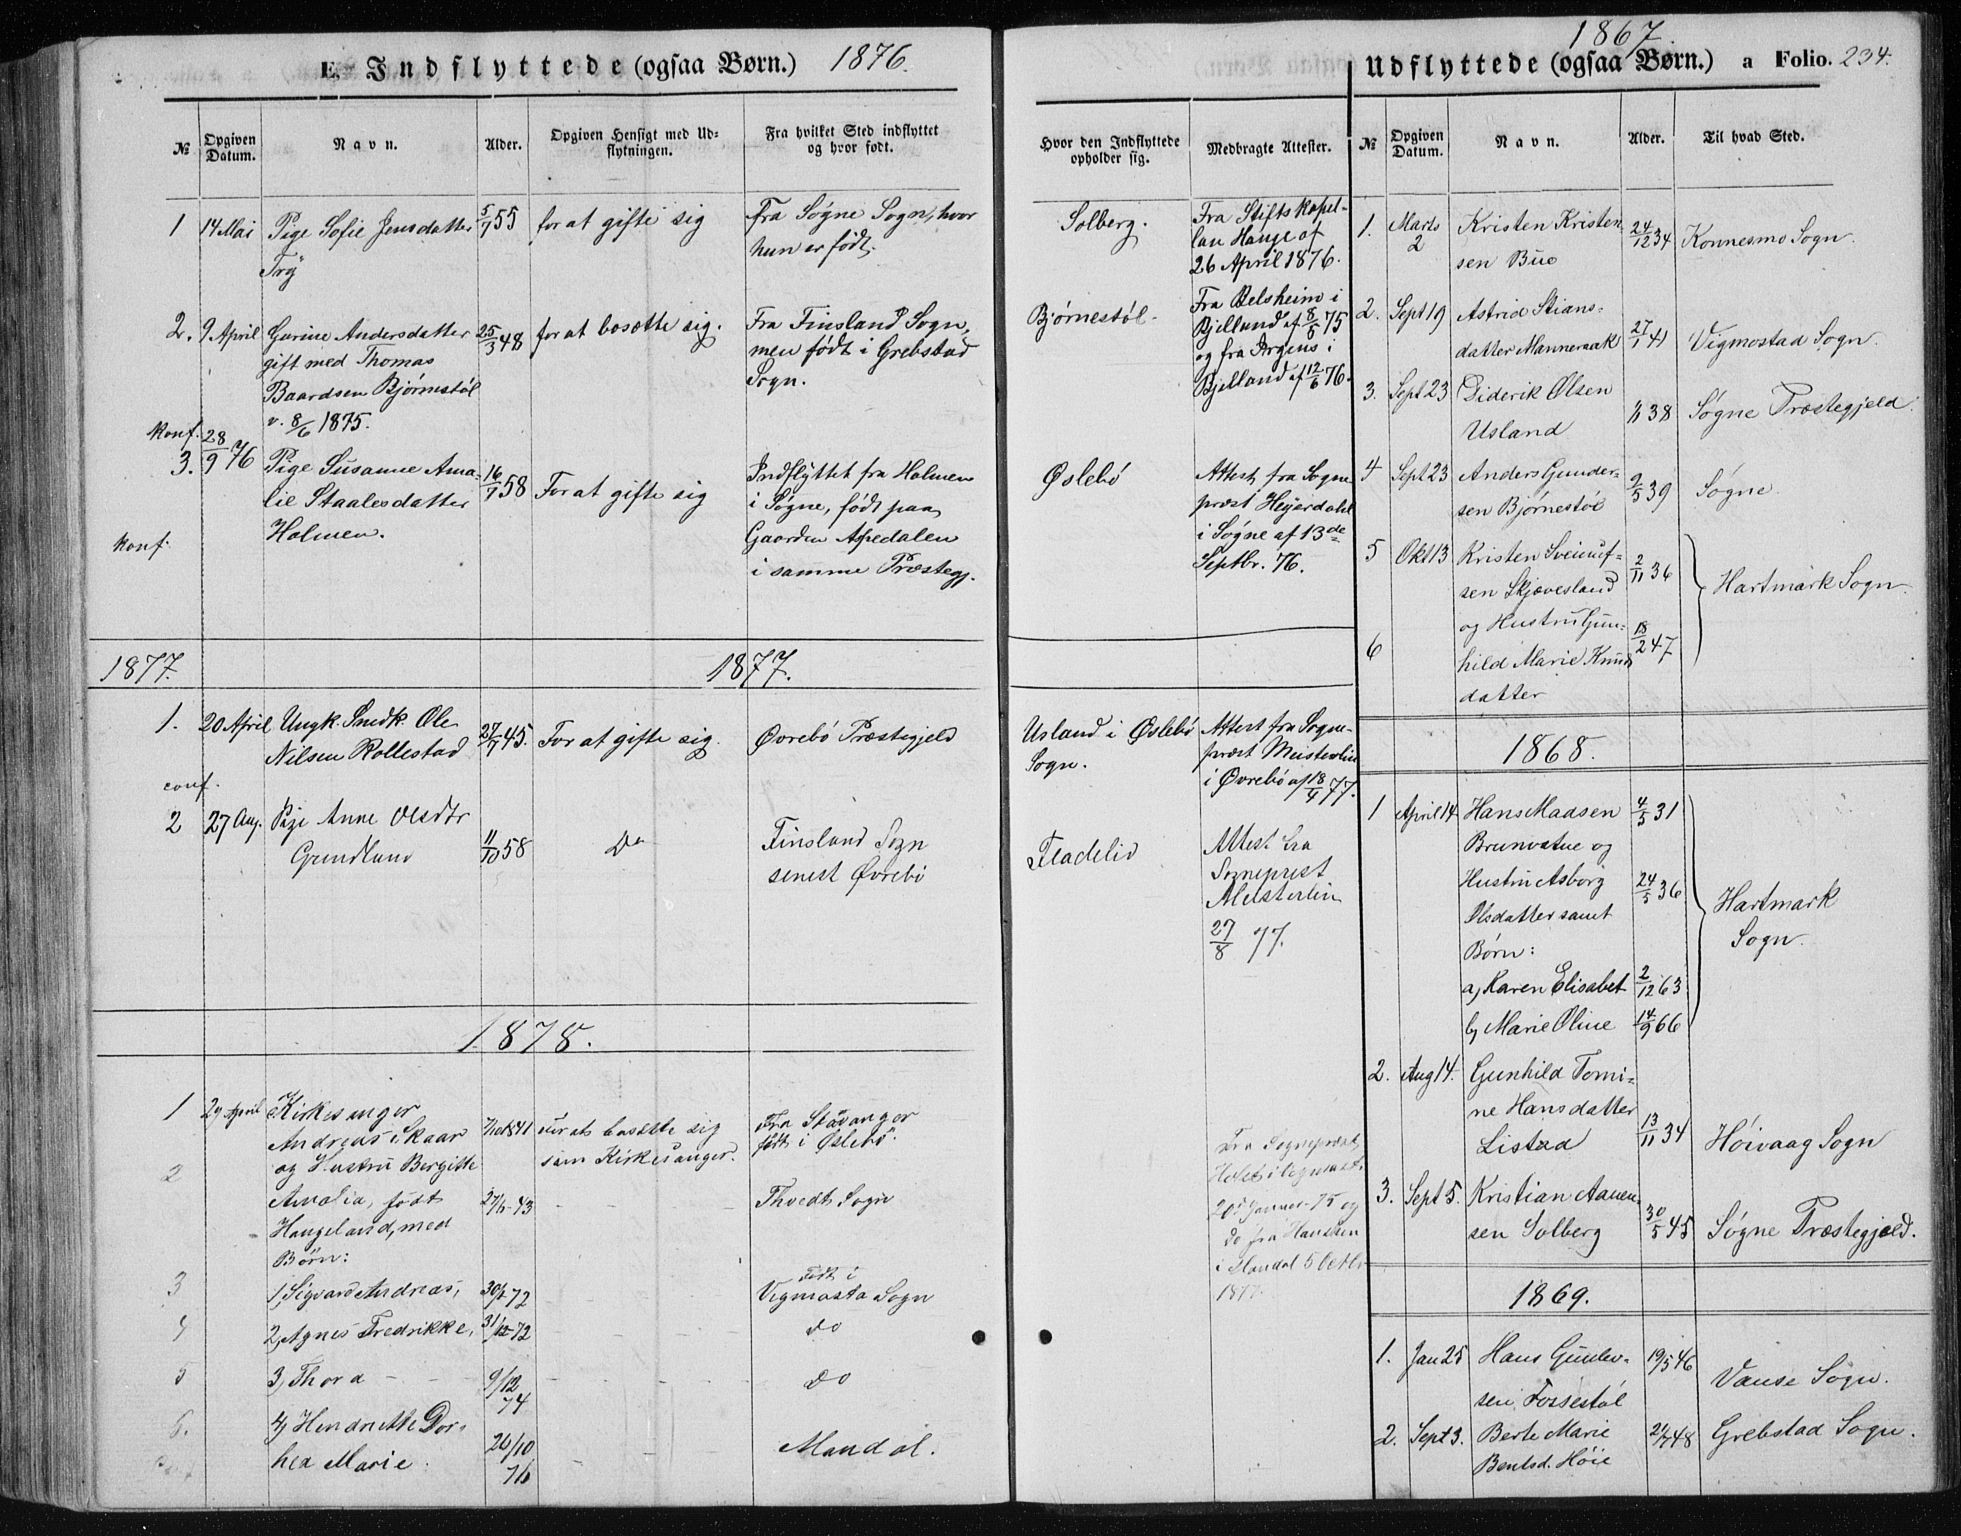 E. Indflyttede (ogsaa Børn.) 1876.
№ Opgiven Datum. Navn. Alder. Opgiven Hensigt med Udflytningen. Fra hvilket Sted indflyttet og hvor født.
Hvor den Indflyttede opholder sig. Medbragte Attester.
1 14 Mai Pige Sofie Jensdatter 5/7 55 for at gifte sig Fra Søgne Sogn, hvor
Try hun er født.
Solberg. Fra Stiftskapel-
lan Hauge af
26 April 1876.
2. 9 April Gurine Andersdatter 25/3 48 for at bosætte sig. Fra Finsland Sogn,
gift med Thomas men født i Grebstad
Baardsen Bjørnestøl Sogn.
v. 8/6 1875.
Bjørnestøl. Fra Belsheim i
Bjelland af 8/5 75
og fra i
Bjelland af 12/6 76.
konf.
3. 28/9 76 Pige Susanne Ama- 16/7 58 For at gifte sig Indflyttet fra Holmen
lie Staalesdatter i Søgne, født paa
Holmen. Gaarden Aspedalen
konf. i samme Præstegj.
Øslebø Attest fra Sogne
præst Heyerdahl
i Søgne af 13de
Septbr. 76.
1877. 1877.
1. 20 April Ungk. Snedk. Ole 27/7 45. For at gifte sig. Øvrebø Præstegjeld
Nilsen Rollestad
conf.
Usland i Øslebø Attest fra Sogne-
Sogn. præst Meisterlin
i Øvrebø af 18/4 77.
2 27 Aug. Pige Anne Olsdtr 11/10 58 Do Finsland Sogn
Grundland senest Øvrebø
Fladelid Attest fra
Sogneprest
Meisterlin
27/8 77.
1878.
1 29 April Kirkesanger
Andreas Skaar 1841 for at bosætte sig Fra Stavanger
2 og Hustru Bergitte som Kirkesanger. født i Øslebø.
Amalia, født 27/6-43 - - Thvedt Sogn
Haugeland, med
Børn:
3 1, Sigvard Andreas, 30/1-72 - - født i
Vigmosta Sogn
4 2, Agnes Fredrikke, 31/12-72 - - do
5 3, Thora - - 9/12 74 - - do
6. 4, Hendriette Dor- 20/10 76 - - Mandal.
thea Marie.
Fra Sogneprest
Holst i Vigmost.
20de Januar-75 og
do fra Hanssen
i Mandal 5 Octbr
1877.
1867.
Udflyttede (ogsaa Børn.) a Folio. 234.
№ Opgiven Datum. Navn. Alder. Til hvad Sted.
1. Marts 2 Kristen Kristen- 24/12 34 Konnesmo Sogn.
sen Bue
2. Sept 19 Astrid Stians-
datter Manneraak 27/1 41 Vigmostad Sogn.
3. Sept 23 Diderik Olsen
Usland 38 Søgne Præstegjeld.
4 Sept 23 Anders Gunder-
sen Bjørnestøl 9/5 39 Søgne.
5 Okt 13 Kristen Sveinuf-
sen Skjævesland 2/11 36 Hartmark Sogn.
og Hustru Gun-
6 hild Marie Knuds 18/2 47
datter
1868.
1 April 14 Hans Madsen 4/5 31
Brunvatne og
Hustru Asborg 24/5 36
Olsdatter samt Hartmark
Børn: Sogn.
a, Karen Elisabet 2/12 63
b, Marie Oline 14/9 66
2. Aug 14. Gunhild Tomi-
ne Hansdatter
Listad 13/11 34 Høivaag Sogn
3. Sept 5. Kristian Aanen-
sen Solberg 30/5 45 Søgne Præstegjeld.
1869.
1. Jan 25 Hans Gunder- 19/5 46 Vanse Sogn.
sen Fossestøl
2. Sept 3. Berte Marie 2/7 48 Grebstad Sogn.
Bentsd. Høie